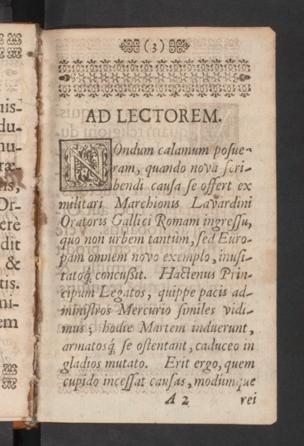 (3)
AD LECTOREM.
NOndum calamum posue-
ram, quando nova scri-
bendi causa se offert ex
militari Marchionis Lavardini
Oratoris Gallici Romam ingressu,
quo non urbem tantùm, sed Euro-
pam omnem novo exemplo, inusi-
tatoq́; concussit. Hactenus Prin-
cipum Legatos, quippe pacis ad-
ministros Mercurio similes vidi-
mus; hodie Martem induerunt,
armatosq́; se ostentant, caduceo in
gladios mutato. Erit ergo, quem
cupido incessat causas, modumque
A 2 rei
uis-
du-
nu-
ræ-
Or-
erè
dit
&
tis.
ni-
em